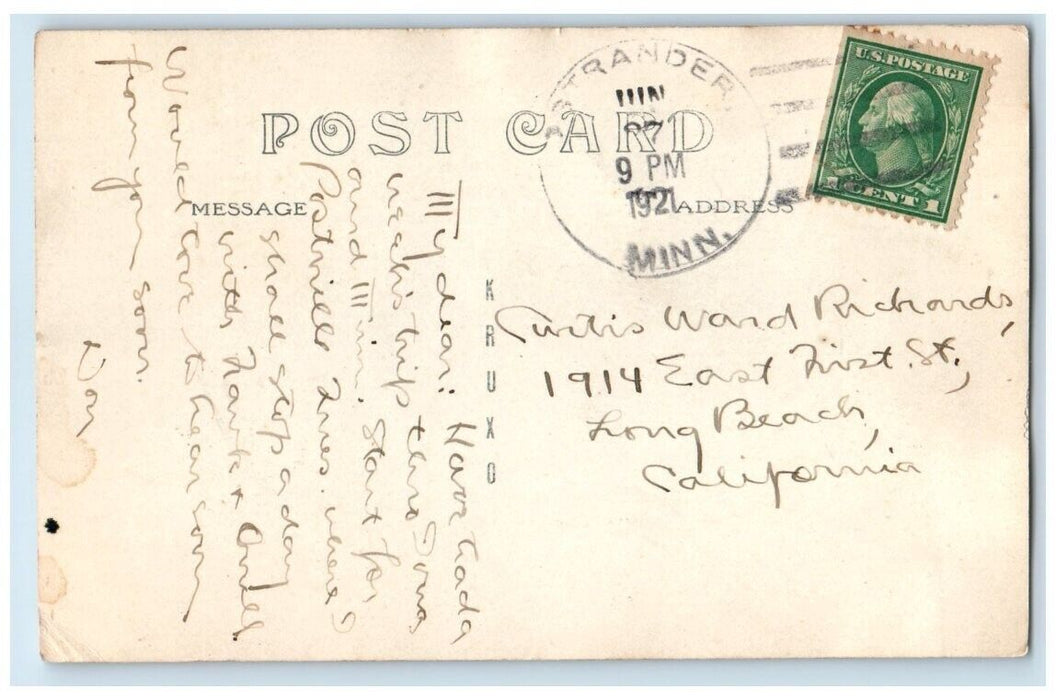 POST CARD
OSTRANDER,
JUN
27
9 PM
1921
MINN.
U.S. POSTAGE
1 CENT 1
MESSAGE
ADDRESS
KRUXO
My dear: Have had a
week's trip thro Iowa
and Minn. Start for
Postville Tues. where I
shall stop a day
with Frank &
Would love to hear soon
from you soon.
Don
Curtis Ward Richards,
1914 East First St.,
Long Beach,
California